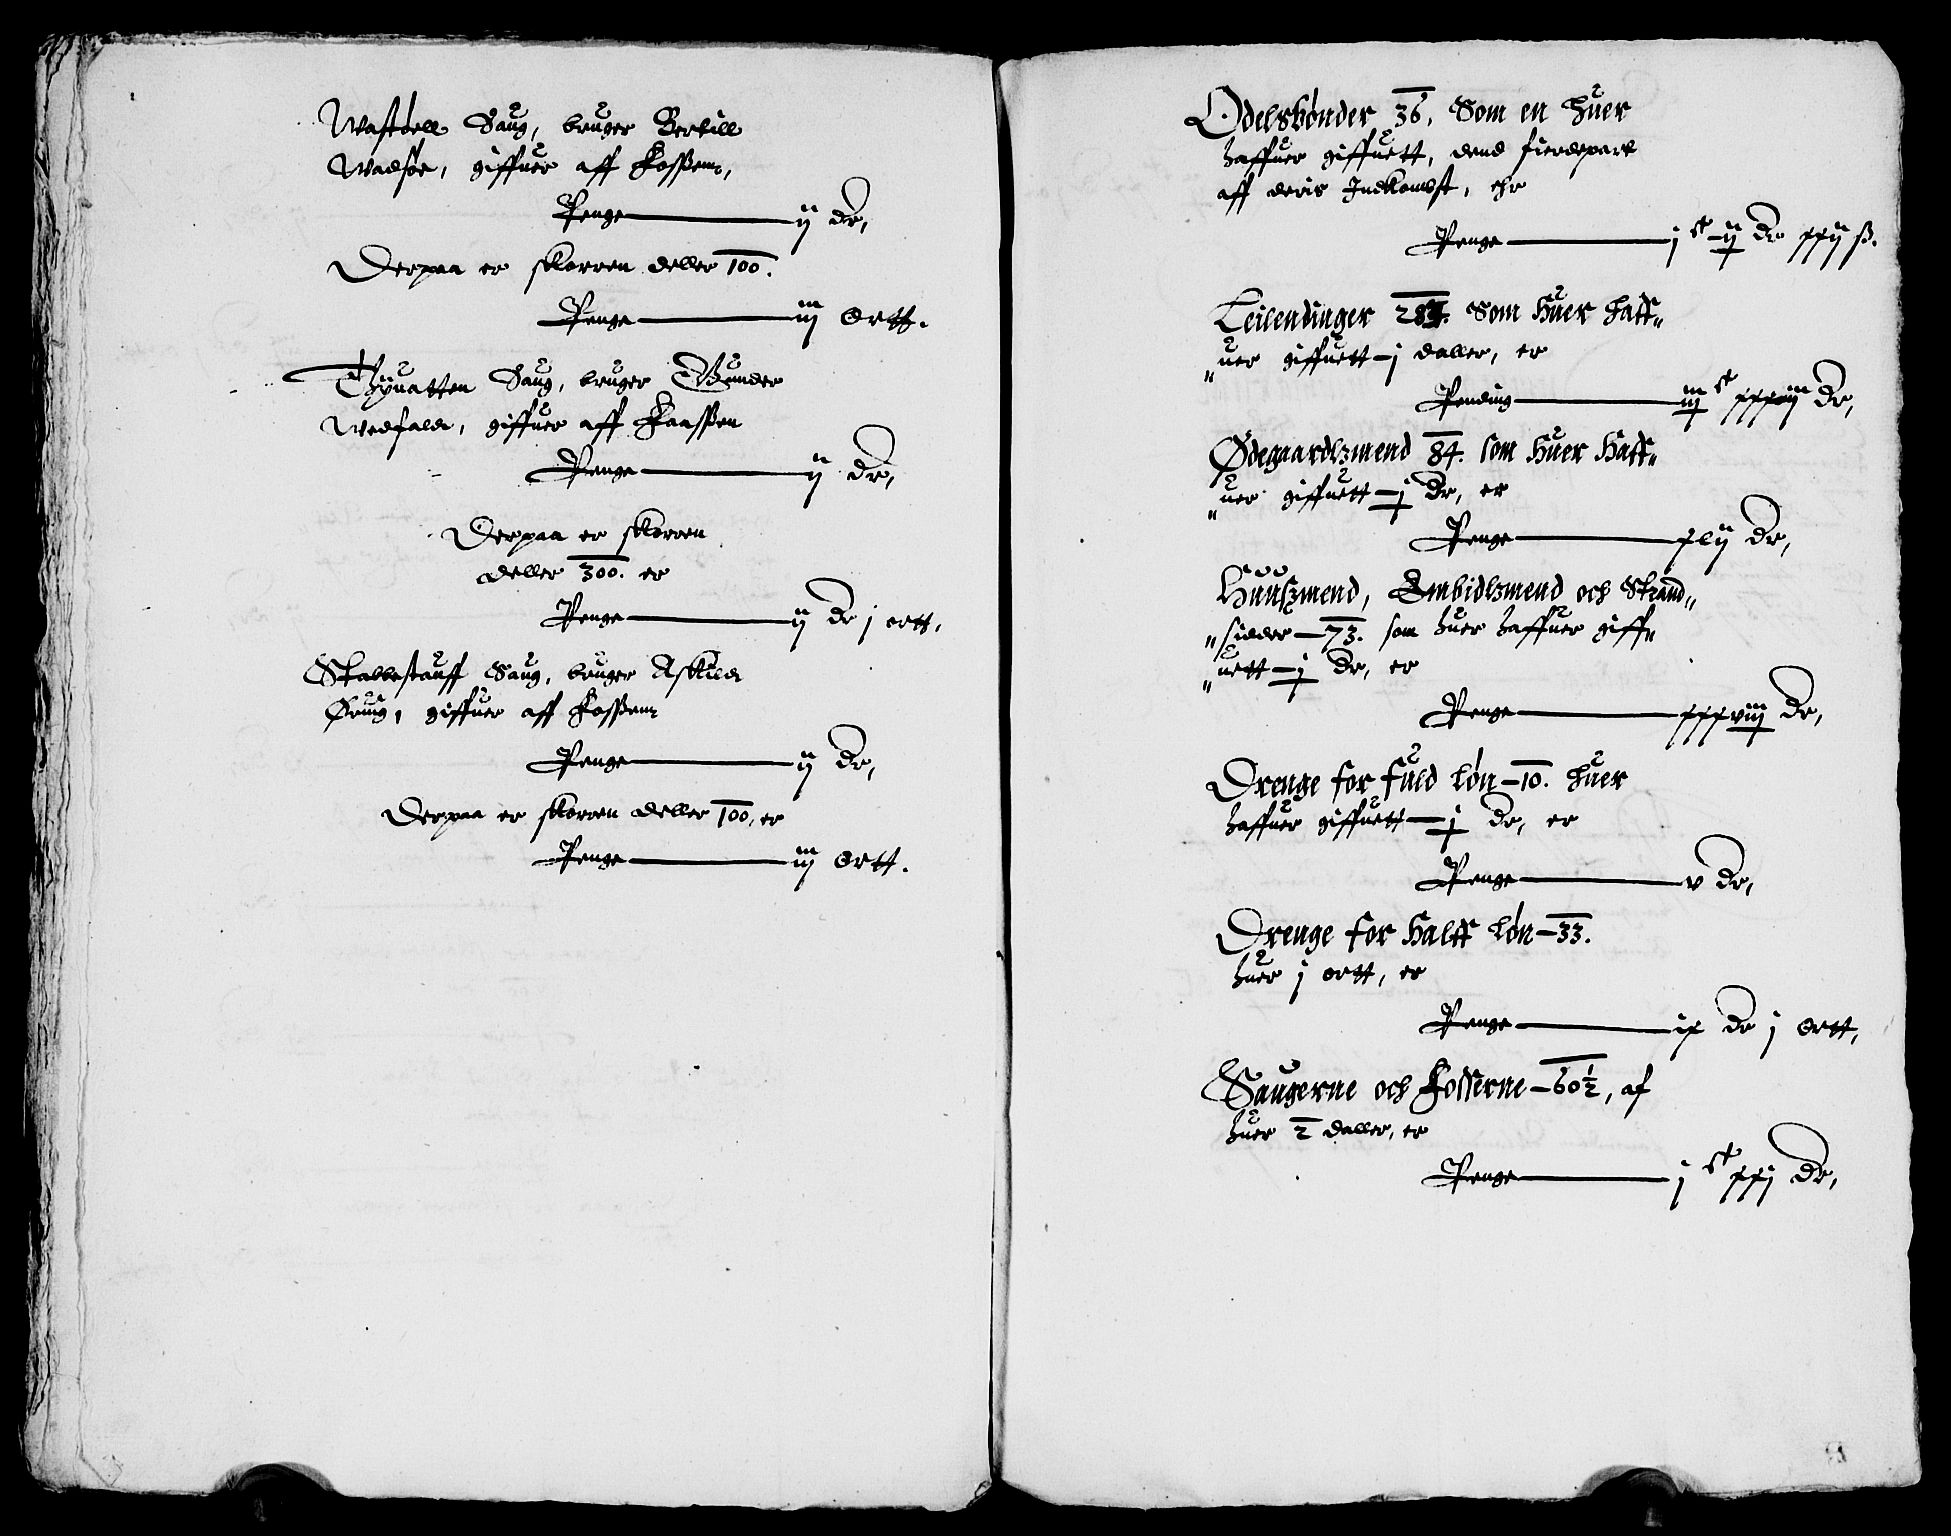 Wastdell Saug, bruger Bertill
Wadsøe, giffuer aff Fossenn,
Penge — ij dr,
Derpaa er skorren deller 100.
Penge — iij ortt.
Thÿuatten Saug, bruger Gunder
Wedfald, giffuer aff Faassen
Penge — ij dr,
Derpaa er skorren
deller 300. er
Penge — ij dr j ortt,
Stabbestauff Saug, bruger Askild
giffuer aff Fossenn
Penge — ij dr,
Derpaa er skorren deller 100, er
Penge — iij ortt.
Odelsbønder 36, Som en huer
haffuer giffuett, dend fierdepart
aff deris Indkombst, ehr
Penge — j st ij dr xxij ß.
Leilendinger Som huer haff„
„uer giffuett — j daller, er
Pending — st dr,
Ødegaardtzmend 84. som huer haff„
„uer giffuett — j dr, er
Penge — xlij dr,
Huuszmend, Embidtzmend och Strand„
„sidder — 73. som huer haffuer giff„
„uett — j dr, er
Penge — dr,
Drenge for fuld løn — 10. huer
haffuer giffuett — j dr, er
Penge — v dr,
Drenge for halff løn — 33.
huer j ortt, er
Penge — ix dr j ortt,
Saugerne och Fosserne — 60½, af
huer 2 daller, er
Penge — j st xxj dr,